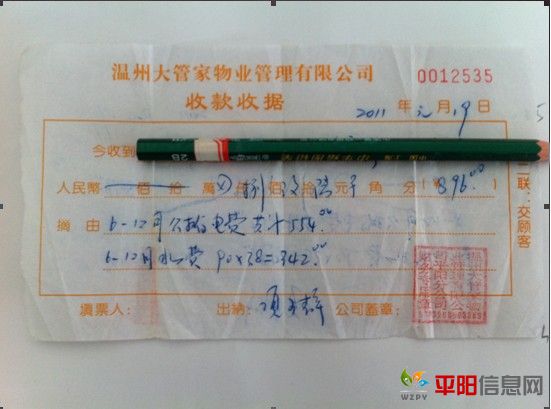 温州大管家物业管理有限公司
0012535
收款收据
2011 年 元 月 19 日
今收到
2B
人民币 佰 拾 萬 仟 捌 佰 玖 拾 陆 元 角 分 896.00
摘由 6-12月公摊电费共计554.00
6-12月水费 90×3.8=342.00
二联:交顾客
填票人: 出纳: 公司盖章:
平阳信息网
WZPY